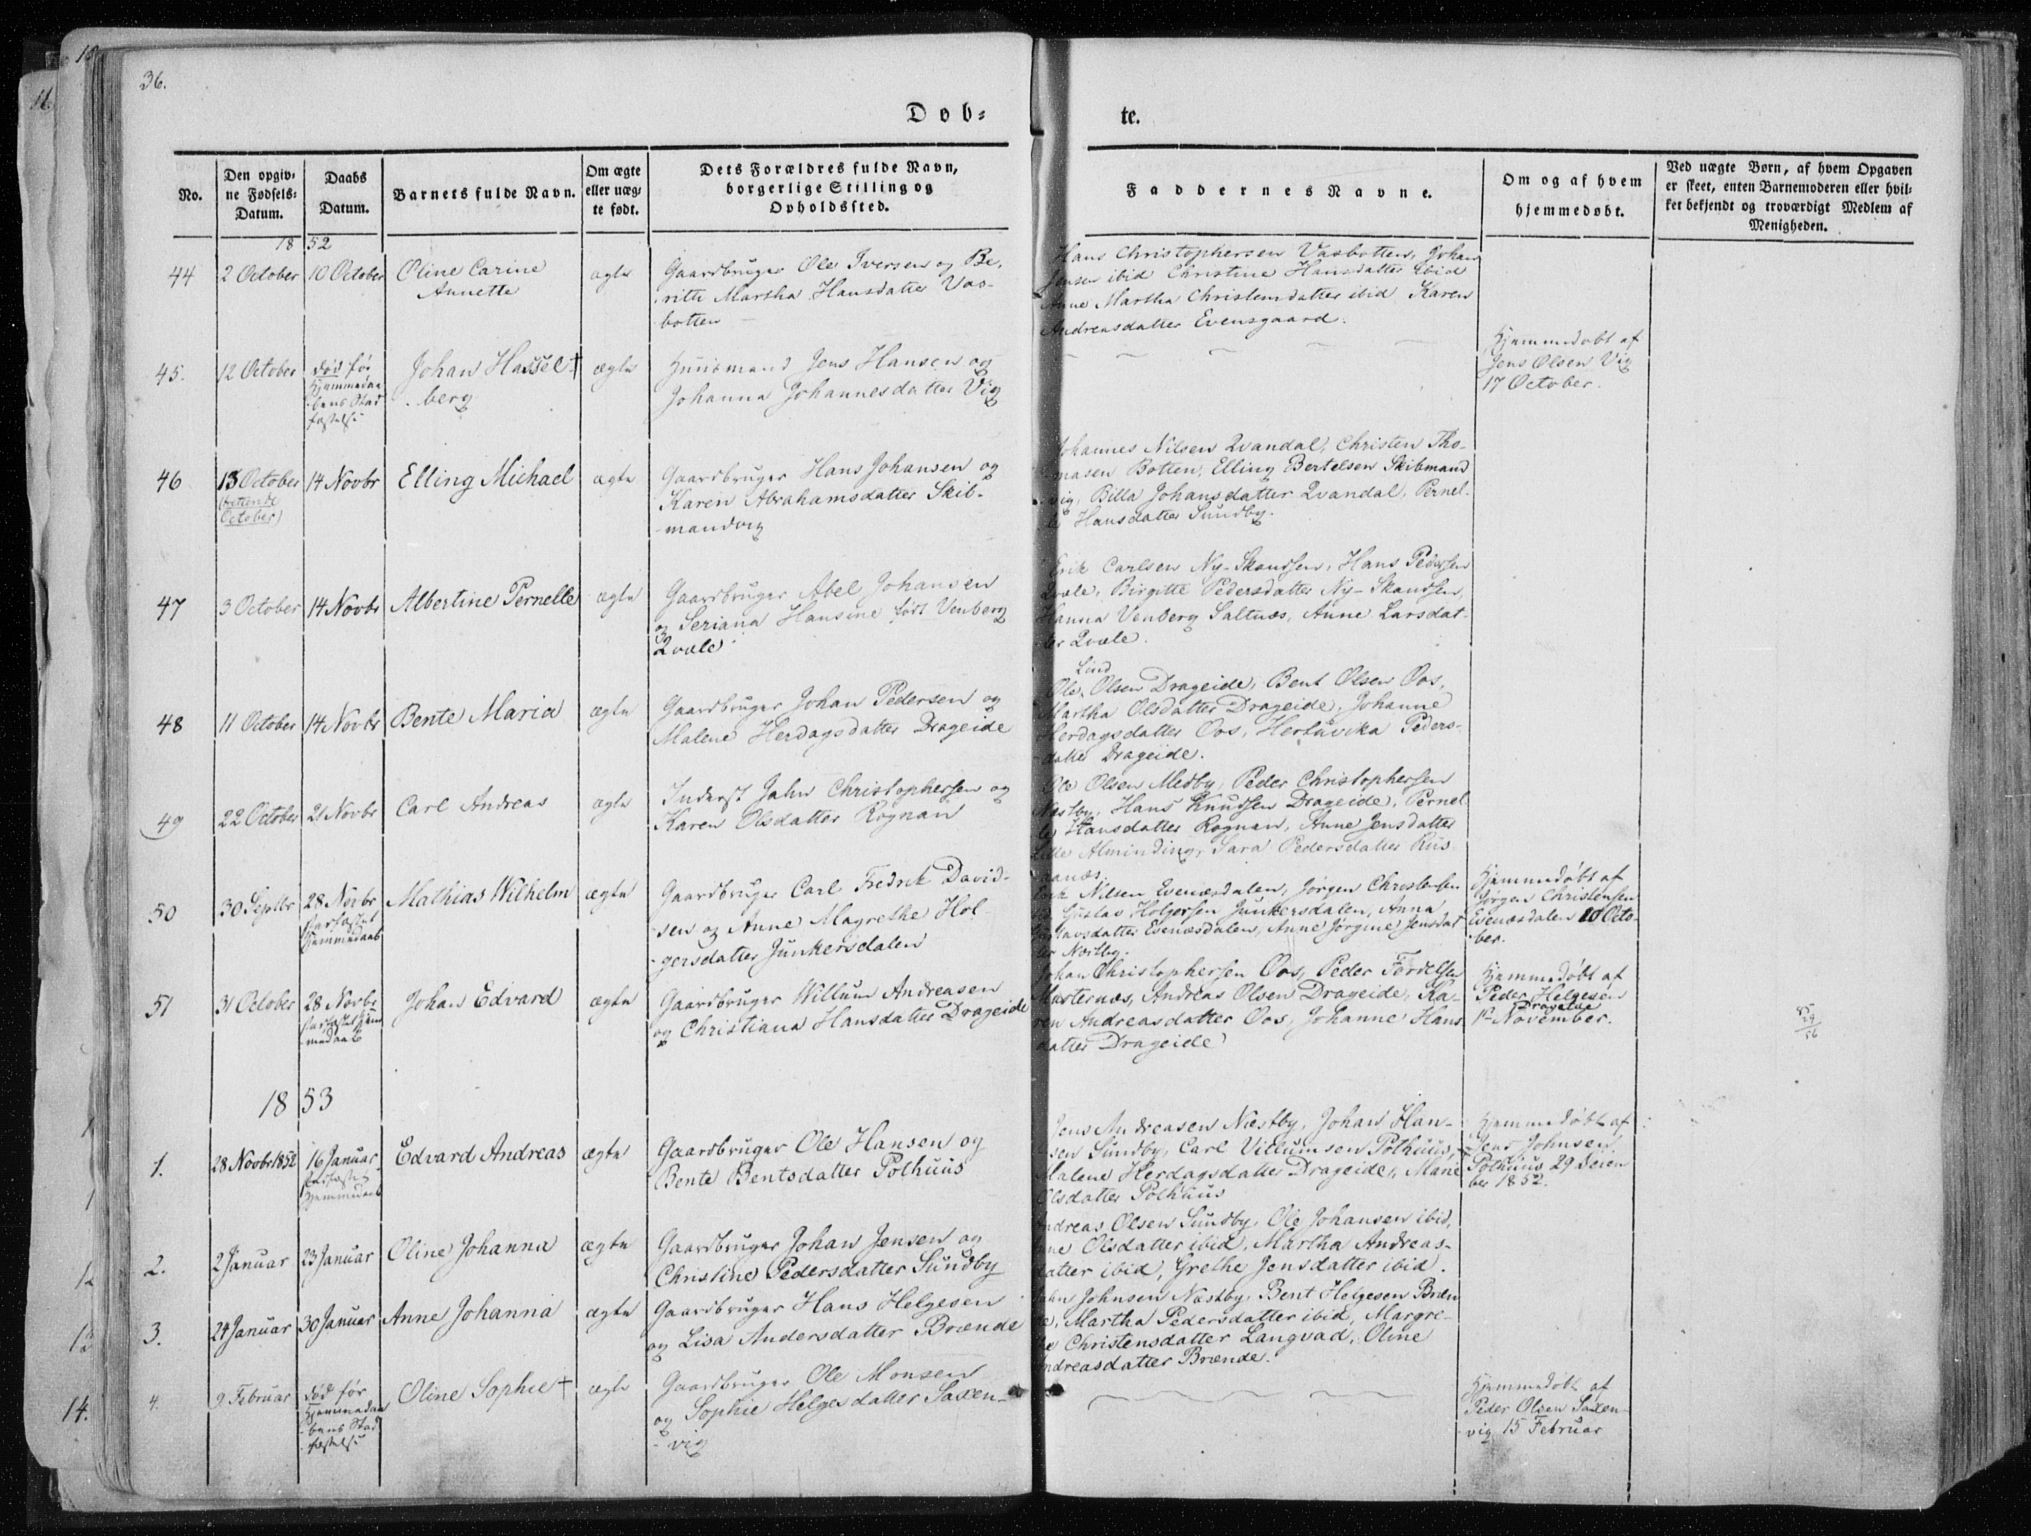 36.
Døb-
te.
No.
Den opgiv-
ne Fødsels-
Datum.
Daabs
Datum.
Barnets fulde Navn.
Om ægte
eller uæg-
te født.
Dets Forældres fulde Navn,
borgerlige Stilling og
Opholdssted.
Faddernes Navne.
Om og af hvem
hjemmedøbt.
Ved uægte Børn, af hvem Opgaven
er skeet, enten Barnemoderen eller hvil-
ket bekjendt og troværdigt Medlem af
Menigheden.
1852
44
2 October
10 October
Oline Carine
Annette
ægte
Gaardbruger Ole Iversen og Be-
rithe Martha Hansdatter Vas-
botten
Hans Christophersen Vasbotten, Johan
Jensen ibid Christine Hansdatter ibid
Anne Martha Christensdatter ibid Karen
Andreasdatter Evensgaard.
45.
12 October
død før
Hjemmedaa-
bens Stad-
fæstelse
Johan Hassel-†
berg
ægte
Huusmand Jens Hansen og
Johanna Johannesdatter Vig
Hjemmedøbt af
Jens Olsen Vig
17 October.
46
13 October
October)
14 Novbr
Elling Michael
ægte
Gaardbruger Hans Johansen og
Karen Abrahamsdatter Skib-
mandvig
Johannes Nilsen Qvandal, Christen Tho-
masen Botten, Elling Bertelsen Skibmand
vig, Billa Johansdatter Qvandal, Pernel-
le Hansdatter Sundby.
47
3 October
14 Novbr
Albertine Pernelle
ægte
Gaardbruger Abel Johansen
og Seriana Hansine født Venberg
Qvæle
Erik Carlsen Ny-Skandsen, Hans Pedersen
Qvæle, Birgitte Pedersdatter Ny-Skandsen,
Hanna Venberg Saltnæs, Anne Larsdat-
ter Qvæle.
48
11 October
14 Novbr
Bente Maria
ægte
Gaardbruger Johan Pedersen og
Malene Herdagsdatter Drageide
Lind
Ole Olsen Drageide, Bent Olsen Oos,
Martha Olsdatter Drageide, Johanne
Herdagsdatter Oos, Hertuvika Peders-
datter Drageide.
49
22 October
21 Novbr
Carl Andreas
ægte
Inderst Jahn Christophersen og
Karen Olsdatter Rognan
Ole Olsen Medby, Peder Christophersen
Næstby, Hans Knudsen Drageide, Pernel
le Hansdatter Rognan, Anne Jensdatter
Lille Alminding, Sara Pedersdatter Rus
aanæs.
50
30 Septbr
28 Novbr
Stadfæstet
Hjemmedaab
Mathias Wilhelm
ægte
Gaardbruger Carl Fredrik David-
sen og Anne Magrethe Hol-
gersdatter Junkersdalen
Erik Nilsen Evenæsdalen, Jørgen Christensen
ibid Gustav Holgersen Junkersdalen, Anna
Gustavsdatter Evenæsdalen, Anne Jørgine Jensdat
ter Næstby.
Hjemmedøbt af
Jørgen Christensen
Evenæsdalen 10 Octo-
ber.
51
31 October
28 Novbr
Stadfæstet Hjem
medaab
Johan Edvard
ægte
Gaardbruger Willum Andreasen
og Christiana Hansdatter Drageide
Johan Christophersen Oos, Peder
Andreas Olsen Drageide, Ka-
ren Andreasdatter Oos, Johanne Hans
datter Drageide
Hjemmedøbt af
Peder Helgesen
Drageide
1st November.
1853
1.
28 Novbr 1852
16 Januar
Stadfæstet
Hjemmedaab
Edvard Andreas
ægte
Gaardbruger Ole Hansen og
Bente Bentsdatter Pothuus
Jens Andreasen Næstby, Johan Han-
sen Sundby, Carl Villumsen Pothuus,
Malene Herdagsdatter Drageide, Marie
Olsdatter Pothuus
Hjemmedøbt af
Jens Johnsen
Pothuus 29 Decem
ber 1852.
2.
2 Januar
23 Januar
Oline Johanna
ægte
Gaardbruger Johan Jensen og
Christine Pedersdatter Sundby
Andreas Olsen Sundby, Ole Johansen ibid,
Olsdatter ibid, Martha Andreas-
datter ibid, Grethe Jensdatter ibid.
3.
24 Januar
30 Januar
Anne Johanna
ægte
Gaardbruger Hans Helgesen
og Lisa Andersdatter Brænde
Jahn Johnsen Næstby, Bent Helgesen Bræn
de, Martha Pedersdatter ibid, Margre-
the Christensdatter Langvad, Oline
Andreasdatter Brænde.
4.
9 Februar
død før
Hjemmedaa
bens Stad
fæstelse
Oline Sophie †
ægte
Gaardbruger Ole Monsen
og Sophie Helgesdatter Saxen-
vig
Hjemmedøbt af
Peder Olsen Saxen-
vig 15 Februar
14.